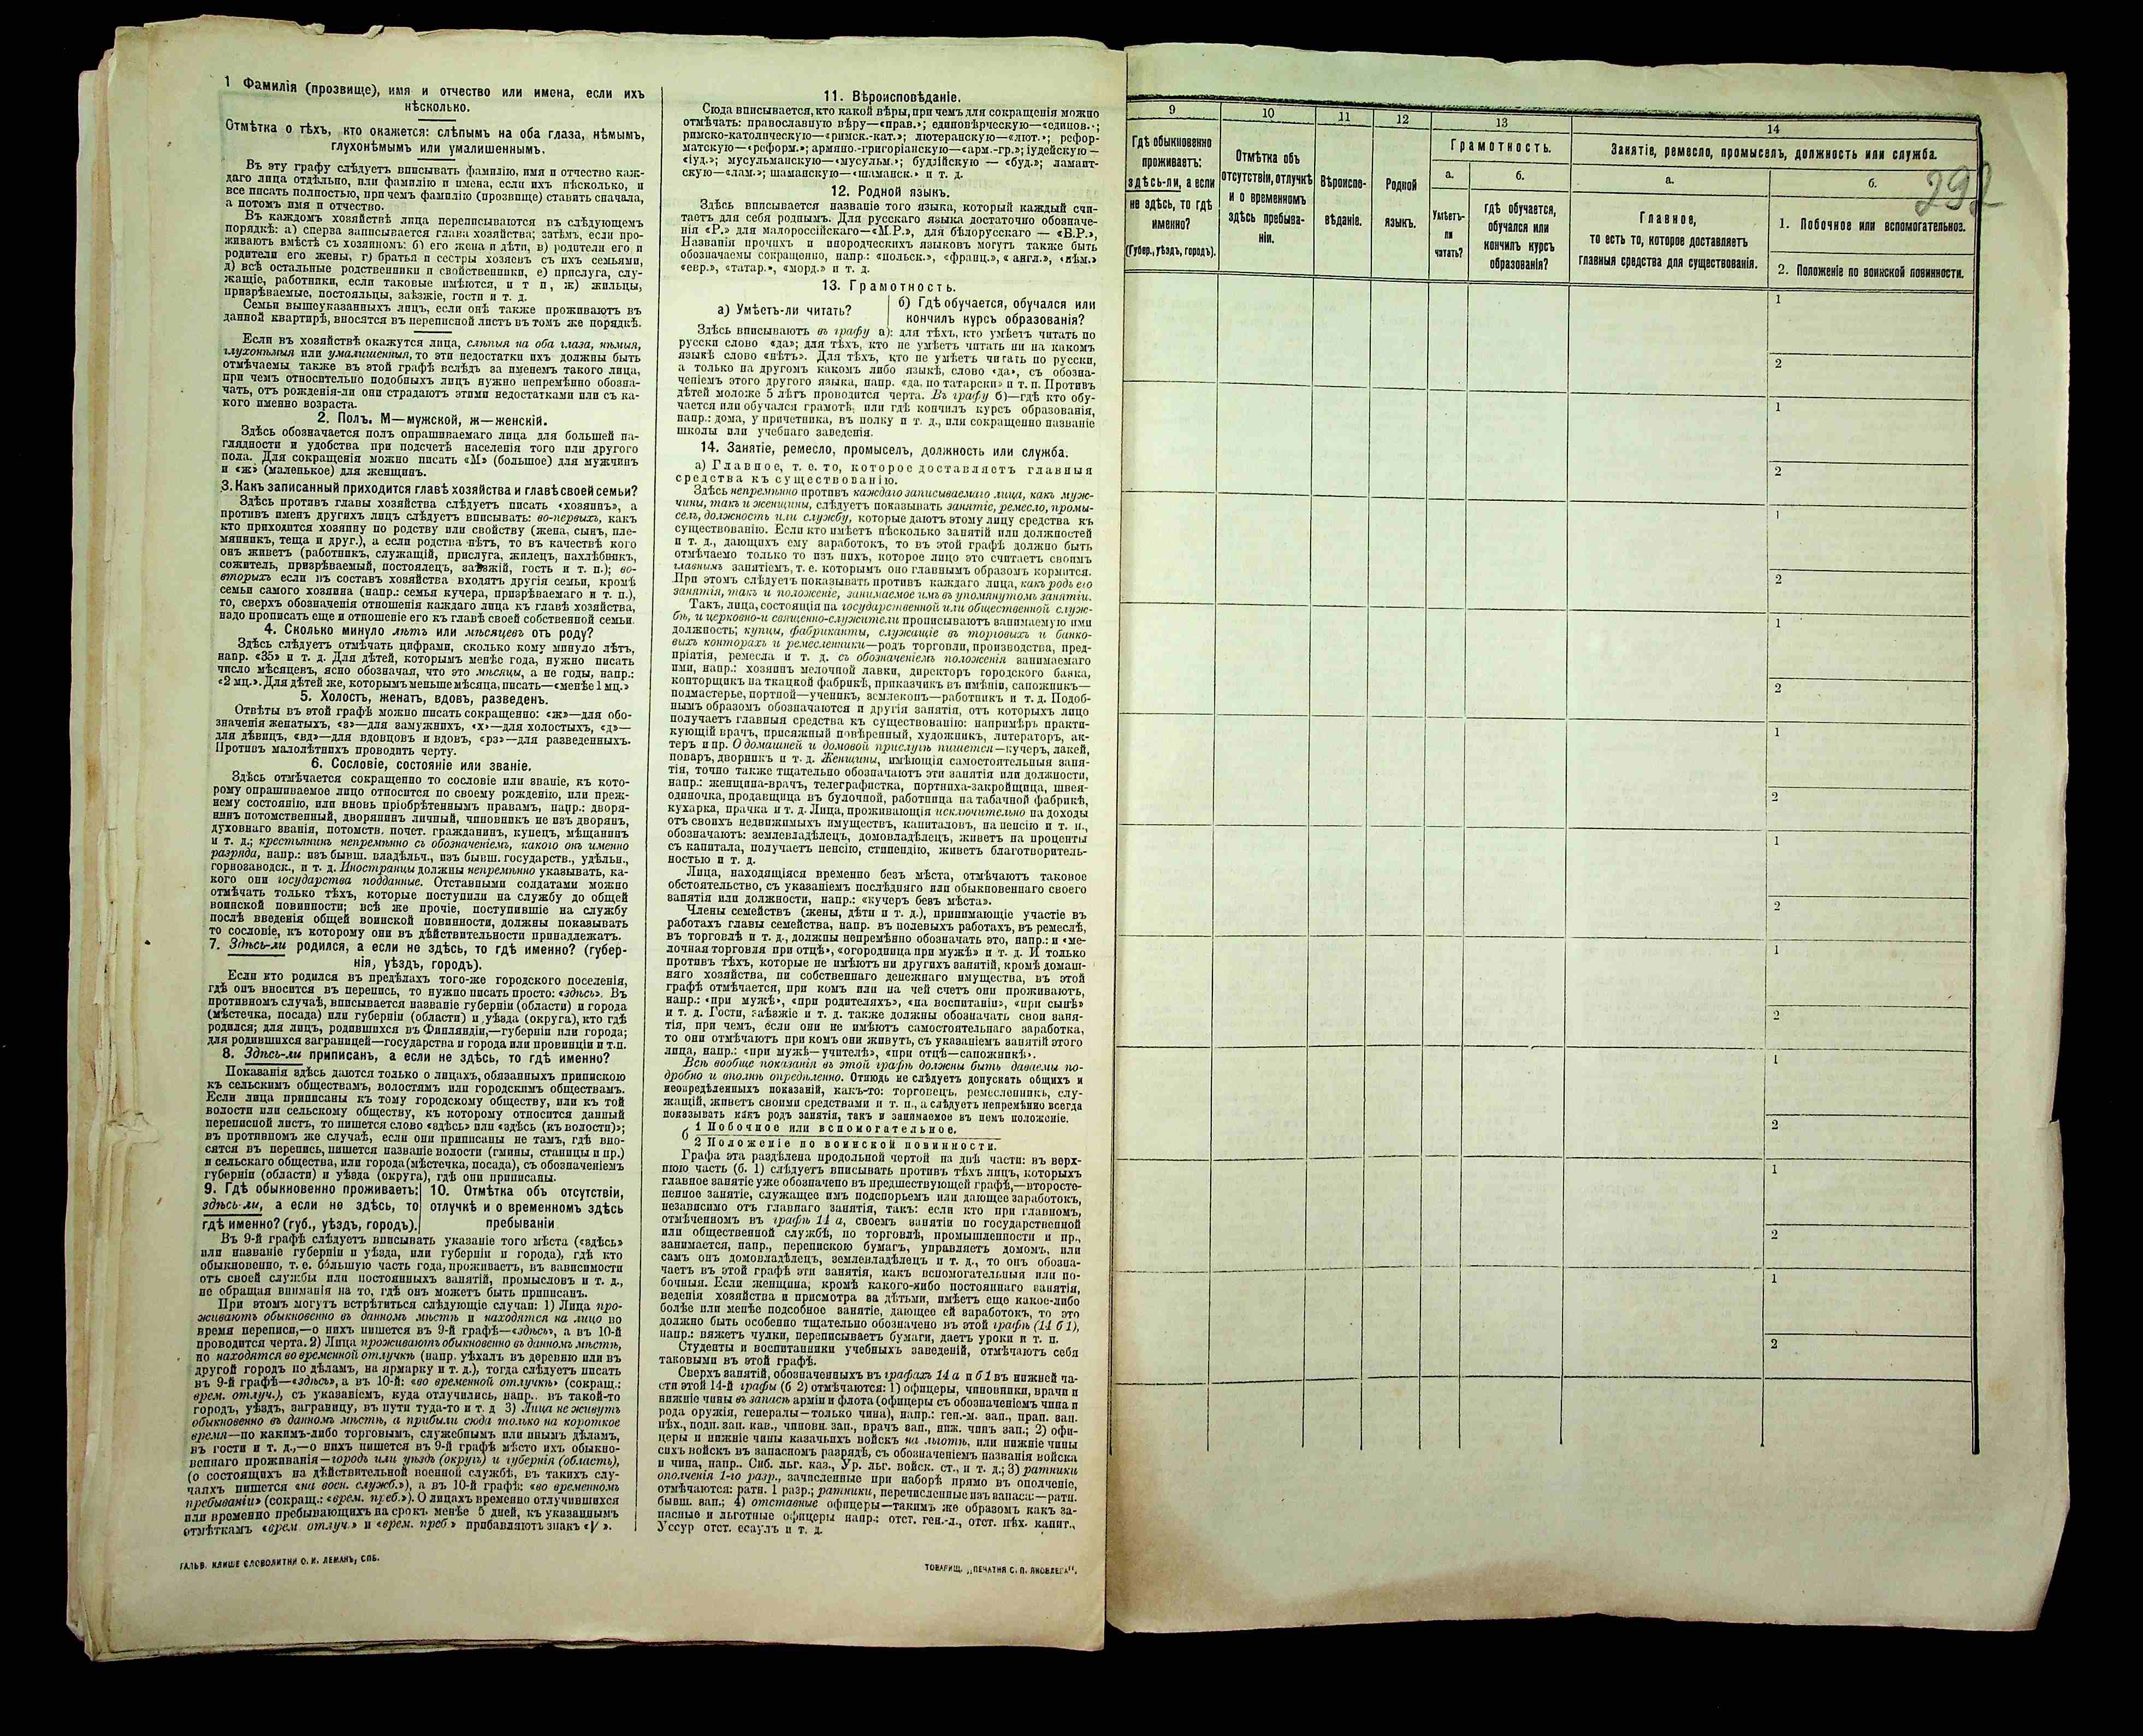 1 Фамилія (прозвище), имя и отчество или имена, если ихъ
нѣсколько.
Отмѣтка о тѣхъ, кто окажется: слѣпымъ на оба глаза, нѣмымъ,
глухонѣмымъ или умалишеннымъ.
Въ эту графу слѣдуетъ вписывать фамилію, имя и отчество каж-
даго лица отдѣльно, или фамилію и имена, если ихъ нѣсколько, и
все писать полностью, при чемъ фамилію (прозвище) ставить сначала,
а потомъ имя и отчество.
Въ каждомъ хозяйствѣ лица переписываются въ слѣдующемъ
порядкѣ: а) сперва записывается глава хозяйства; затѣмъ, если про-
живаютъ вмѣстѣ съ хозяиномъ: б) его жена и дѣти, в) родители его и
родители его жены, г) братья и сестры хозяевъ съ ихъ семьями,
д) всѣ остальные родственники и свойственники, е) прислуга, слу-
жащіе, работники, если таковые имѣются, и т п, ж) жильцы,
призрѣваемые, постояльцы, заѣзжіе, гости и т. д.
Семьи вышеуказанныхъ лицъ, если онѣ также проживаютъ въ
данной квартирѣ, вносятся въ переписной листъ въ томъ же порядкѣ.
Если въ хозяйствѣ окажутся лица, слѣпыя на оба глаза, нѣмыя,
глухонѣмыя или умалишенныя, то эти недостатки ихъ должны быть
отмѣчаемы также въ этой графѣ вслѣдъ за именемъ такого лица,
при чемъ относительно подобныхъ лицъ нужно непремѣнно обозна-
чать, отъ рожденія-ли они страдаютъ этими недостатками или съ ка-
кого именно возраста.
2. Полъ. М—мужской, ж—женскій.
Здѣсь обозначается полъ опрашиваемаго лица для большей на-
глядности и удобства при подсчетѣ населенія того или другого
пола. Для сокращенія можно писать «М» (большое) для мужчинъ
и «ж» (маленькое) для женщинъ.
3. Какъ записанный приходится главѣ хозяйства и главѣ своей семьи?
Здѣсь противъ главы хозяйства слѣдуетъ писать «хозяинъ», а
противъ именъ другихъ лицъ слѣдуетъ вписывать: во-первыхъ, какъ
кто приходится хозяину по родству или свойству (жена, сынъ, пле-
мянникъ, теща и друг.), а если родства нѣтъ, то въ качествѣ кого
онъ живетъ (работникъ, служащій, прислуга, жилецъ, нахлѣбникъ,
сожитель, призрѣваемый, постоялецъ, заѣзжій, гость и т. п.); во-
вторыхъ если въ составъ хозяйства входятъ другія семьи, кромѣ
семьи самого хозяина (напр.: семья кучера, призрѣваемаго и т. п.),
то, сверхъ обозначенія отношенія каждаго лица къ главѣ хозяйства,
надо прописать еще и отношеніе его къ главѣ своей собственной семьи.
4. Сколько минуло лѣтъ или мѣсяцевъ отъ роду?
Здѣсь слѣдуетъ отмѣчать цифрами, сколько кому минуло лѣтъ,
напр. «35» и т. д. Для дѣтей, которымъ менѣе года, нужно писать
число мѣсяцевъ, ясно обозначая, что это мѣсяцы, а не годы, напр.:
«2 мц.». Для дѣтей же, которымъ меньше мѣсяца, писать—«менѣе 1 мц.»
5. Холостъ, женатъ, вдовъ, разведенъ.
Отвѣты въ этой графѣ можно писать сокращенно: «ж»—для обо-
значенія женатыхъ, «з»—для замужнихъ, «х»—для холостыхъ, «д»—
для дѣвицъ, «вд»—для вдовцовъ и вдовъ, «рз»—для разведенныхъ.
Противъ малолѣтнихъ проводить черту.
6. Сословіе, состояніе или званіе.
Здѣсь отмѣчается сокращенно то сословіе или званіе, къ кото-
рому опрашиваемое лицо относится по своему рожденію, или преж-
нему состоянію, или вновь пріобрѣтеннымъ правамъ, напр.: дворя-
нинъ потомственный, дворянинъ личный, чиновникъ не изъ дворянъ,
духовнаго званія, потомств. почет. гражданинъ, купецъ, мѣщанинъ
и т. д.; крестьянинъ непремѣнно съ обозначеніемъ, какого онъ именно
разряда, напр.: изъ бывш. владѣльч., изъ бывш. государств., удѣльн.,
горнозаводск., и т. д. Иностранцы должны непремѣнно указывать, ка-
кого они государства подданные. Отставными солдатами можно
отмѣчать только тѣхъ, которые поступили на службу до общей
воинской повинности; всѣ же прочіе, поступившіе на службу
послѣ введенія общей воинской повинности, должны показывать
то сословіе, къ которому они въ дѣйствительности принадлежатъ.
7. Здѣсь-ли родился, а если не здѣсь, то гдѣ именно? (губер-
нія, уѣздъ, городъ).
Если кто родился въ предѣлахъ того-же городского поселенія,
гдѣ онъ вносится въ перепись, то нужно писать просто: «здѣсь». Въ
противномъ случаѣ, вписывается названіе губерніи (области) и города
(мѣстечка, посада) или губерніи (области) и уѣзда (округа), кто гдѣ
родился; для лицъ, родившихся въ Финляндіи,—губерніи или города;
для родившихся заграницей—государства и города или провинціи и т.п.
8. Здѣсь-ли приписанъ, а если не здѣсь, то гдѣ именно?
Показанія здѣсь даются только о лицахъ, обязанныхъ припискою
къ сельскимъ обществамъ, волостямъ или городскимъ обществамъ.
Если лица приписаны къ тому городскому обществу, или къ той
волости или сельскому обществу, къ которому относится данный
переписной листъ, то пишется слово «здѣсь» или «здѣсь (къ волости)»;
въ противномъ же случаѣ, если они приписаны не тамъ, гдѣ вно-
сятся въ перепись, пишется названіе волости (гмины, станицы и пр.)
и сельскаго общества, или города (мѣстечка, посада), съ обозначеніемъ
губерніи (области) и уѣзда (округа), гдѣ они приписаны.
9. Гдѣ обыкновенно проживаетъ:
здѣсь-ли, а если не здѣсь, то
гдѣ именно? (губ., уѣздъ, городъ).
10. Отмѣтка объ отсутствіи,
отлучкѣ и о временномъ здѣсь
пребываніи
Въ 9-й графѣ слѣдуетъ вписывать указаніе того мѣста («здѣсь»
или названіе губерніи и уѣзда, или губерніи и города), гдѣ кто
обыкновенно, т. е. бо́льшую часть года, проживаетъ, въ зависимости
отъ своей службы или постоянныхъ занятій, промысловъ и т. д.,
не обращая вниманія на то, гдѣ онъ можетъ быть приписанъ.
При этомъ могутъ встрѣтиться слѣдующіе случаи: 1) Лица про-
живаютъ обыкновенно въ данномъ мѣстѣ и находятся на лицо во
время переписи,—о нихъ пишется въ 9-й графѣ—«здѣсь», а въ 10-й
проводится черта. 2) Лица проживаютъ обыкновенно въ данномъ мѣстѣ,
но находятся во временной отлучкѣ (напр. уѣхалъ въ деревню или въ
другой городъ по дѣламъ, на ярмарку и т. д.), тогда слѣдуетъ писать
въ 9-й графѣ—«здѣсь», а въ 10-й: «во временной отлучкѣ» (сокращ.:
врем. отлуч.), съ указаніемъ, куда отлучились, напр.. въ такой-то
городъ, уѣздъ, заграницу, въ пути туда-то и т. д 3) Лица не живутъ
обыкновенно въ данномъ мѣстѣ, а прибыли сюда только на короткое
время—по какимъ-либо торговымъ, служебнымъ или инымъ дѣламъ,
въ гости и т. д.,—о нихъ пишется въ 9-й графѣ мѣсто ихъ обыкно-
веннаго проживанія—городъ или уѣздъ (округъ) и губернія (область),
(о состоящихъ на дѣйствительной военной службѣ, въ такихъ слу-
чаяхъ пишется «на воен. служб.»), а въ 10-й графѣ: «во временномъ
пребываніи» (сокращ.: «врем. преб.»). О лицахъ временно отлучившихся
или временно пребывающихъ на срокъ менѣе 5 дней, къ указаннымъ
отмѣткамъ «врем отлуч.» и «врем. преб.» прибавляютъ знакъ «V».
ГАЛЬВ. КЛИШЕ СЛОВОЛИТНИ О. И. ЛЕМАНЪ, СПБ.
11. Вѣроисповѣданіе.
Сюда вписывается, кто какой вѣры, при чемъ для сокращенія можно
отмѣчать: православную вѣру—«прав.»; единовѣрческую—«единов.»;
римско-католическую—«римск.-кат.»; лютеранскую—«лют.»; рефор-
матскую—«реформ.»; армяно.-григоріанскую—«арм.-гр.»; іудейскую—
«іуд.»; мусульманскую—«мусульм.»; буддійскую — «буд.»; ламаит-
скую—«лам.»; шаманскую—«шаманск.» и т. д.
12. Родной языкъ.
Здѣсь вписывается названіе того языка, который каждый счи-
таетъ для себя роднымъ. Для русскаго языка достаточно обозначе-
нія «Р.» для малороссійскаго—«М.Р.», для бѣлорусскаго — «Б.Р.»,
Названія прочихъ и инородческихъ языковъ могутъ также быть
обозначаемы сокращенно, напр.: «польск.», «франц.», « англ.», «нѣм.»
«евр.», «татар.», «морд.» и т. д.
13. Грамотность.
а) Умѣетъ-ли читать?
б) Гдѣ обучается, обучался или
кончилъ курсъ образованія?
Здѣсь вписываютъ въ графу а): для тѣхъ, кто умѣетъ читать по
русски слово «да»; для тѣхъ, кто не умѣетъ читать ни на какомъ
языкѣ слово «нѣтъ». Для тѣхъ, кто не умѣетъ читать по русски,
а только на другомъ какомъ либо языкѣ, слово «да», съ обозна-
ченіемъ этого другого языка, напр. «да, по татарски» и т. п. Противъ
дѣтей моложе 5 лѣтъ проводится черта. Въ графу б)—гдѣ кто обу-
чается или обучался грамотѣ, или гдѣ кончилъ курсъ образованія,
напр.: дома, у причетника, въ полку и т. д., или сокращенно названіе
школы или учебнаго заведенія.
14. Занятіе, ремесло, промыселъ, должность или служба.
а) Главное, т. е. то, которое доставляетъ главныя
средства къ существованію.
Здѣсь непремѣнно противъ каждаго записываемаго лица, какъ муж-
чины, такъ и женщины, слѣдуетъ показывать занятіе, ремесло, промы-
селъ, должность или службу, которые даютъ этому лицу средства къ
существованію. Если кто имѣетъ нѣсколько занятій или должностей
и т. д., дающихъ ему заработокъ, то въ этой графѣ должно быть
отмѣчаемо только то изъ нихъ, которое лицо это считаетъ своимъ
главнымъ занятіемъ, т. е. которымъ оно главнымъ образомъ кормится.
При этомъ слѣдуетъ показывать противъ каждаго лица, какъ родъ его
занятія, такъ и положеніе, занимаемое имъ въ упомянутомъ занятіи.
Такъ, лица, состоящія на государственной или общественной служ-
бѣ, и церковно-и священно-служители прописываютъ занимаемую ими
должность; купцы, фабриканты, служащіе въ торговыхъ и банко-
выхъ конторахъ и ремесленники—родъ торговли, производства, пред-
пріятія, ремесла и т. д. съ обозначеніемъ положенія занимаемаго
ими, напр.: хозяинъ мелочной лавки, директоръ городского банка,
конторщикъ на ткацкой фабрикѣ, приказчикъ въ имѣніи, сапожникъ—
подмастерье, портной—ученикъ, землекопъ—работникъ и т. д. Подоб-
нымъ образомъ обозначаются и другія занятія, отъ которыхъ лицо
получаетъ главныя средства къ существованію: напримѣръ практи-
кующій врачъ, присяжный повѣренный, художникъ, литераторъ, ак-
теръ и пр. О домашней и домовой прислугѣ пишется—кучеръ, лакей,
поваръ, дворникъ и т. д. Женщины, имѣющія самостоятельныя заня-
тія, точно также тщательно обозначаютъ эти занятія или должности,
напр.: женщина-врачъ, телеграфистка, портниха-закройщица, швея-
одиночка, продавщица въ булочной, работница на табачной фабрикѣ,
кухарка, прачка и т. д. Лица, проживающія исключительно на доходы
отъ своихъ недвижимыхъ имуществъ, капиталовъ, на пенсію и т. п.,
обозначаютъ: землевладѣлецъ, домовладѣлецъ, живетъ на проценты
съ капитала, получаетъ пенсію, стипендію, живетъ благотворитель-
ностью и т. д.
Лица, находящіяся временно безъ мѣста, отмѣчаютъ таковое
обстоятельство, съ указаніемъ послѣдняго или обыкновеннаго своего
занятія или должности, напр.: «кучеръ безъ мѣста».
Члены семействъ (жены, дѣти и т. д.), принимающіе участіе въ
работахъ главы семейства, напр. въ полевыхъ работахъ, въ ремеслѣ,
въ торговлѣ и т. д., должны непремѣнно обозначать это, напр.: и «ме-
лочная торговля при отцѣ», «огородница при мужѣ» и т. д. И только
противъ тѣхъ, которые не имѣютъ ни другихъ занятій, кромѣ домаш-
няго хозяйства, ни собственнаго денежнаго имущества, въ этой
графѣ отмѣчается, при комъ или на чей счетъ они проживаютъ,
напр.: «при мужѣ», «при родителяхъ», «на воспитаніи», «при сынѣ»
и т. д. Гости, заѣзжіе и т. д. также должны обозначать свои заня-
тія, при чемъ, если они не имѣютъ самостоятельнаго заработка,
то они отмѣчаютъ при комъ они живутъ, съ указаніемъ занятій этого
лица, напр.: «при мужѣ—учителѣ», «при отцѣ—сапожникѣ».
Всѣ вообще показанія въ этой графѣ должны быть даваемы по-
дробно и вполнѣ опредѣленно. Отнюдь не слѣдуетъ допускать общихъ и
неопредѣленныхъ показаній, какъ-то: торговецъ, ремесленникъ, слу-
жащій, живетъ своими средствами и т. п., а слѣдуетъ непремѣнно всегда
показывать какъ родъ занятія, такъ и занимаемое въ немъ положеніе.
б 1 Побочное или вспомогательное.
2 Положеніе по воинской повинности.
Графа эта раздѣлена продольной чертой на двѣ части: въ верх-
нюю часть (б. 1) слѣдуетъ вписывать противъ тѣхъ лицъ, которыхъ
главное занятіе уже обозначено въ предшествующей графѣ,—второсте-
пенное занятіе, служащее имъ подспорьемъ или дающее заработокъ,
независимо отъ главнаго занятія, такъ: если кто при главномъ,
отмѣченномъ въ графѣ 14 а, своемъ занятіи по государственной
или общественной службѣ, по торговлѣ, промышленности и пр.,
занимается, напр., перепискою бумагъ, управляетъ домомъ, или
самъ онъ домовладѣлецъ, землевладѣлецъ и т. д., то онъ обозна-
чаетъ въ этой графѣ эти занятія, какъ вспомогательныя или по-
бочныя. Если женщина, кромѣ какого-либо постояннаго занятія,
веденія хозяйства и присмотра за дѣтьми, имѣетъ еще какое-либо
болѣе или менѣе подсобное занятіе, дающее ей заработокъ, то это
должно быть особенно тщательно обозначено въ этой графѣ (14 б 1),
напр.: вяжетъ чулки, переписываетъ бумаги, даетъ уроки и т. п.
Студенты и воспитанники учебныхъ заведеній, отмѣчаютъ себя
таковыми въ этой графѣ.
Сверхъ занятій, обозначенныхъ въ графахъ 14 а и б 1 въ нижней ча-
сти этой 14-й графы (б 2) отмѣчаются: 1) офицеры, чиновники, врачи и
нижніе чины въ запасѣ арміи и флота (офицеры съ обозначеніемъ чина и
рода оружія, генералы—только чина), напр.: ген.-м. зап., прап. зап.
пѣх., подп. зап. кав., чиновн. зап., врачъ зап., ниж. чинъ зап.; 2) офи-
церы и нижніе чины казачьихъ войскъ на льготѣ, или нижніе чины
сихъ войскъ въ запасномъ разрядѣ, съ обозначеніемъ названія войска
и чина, напр.. Сиб. льг. каз., Ур. льг. войск. ст., и т. д.; 3) ратники
ополченія 1-го разр., зачисленные при наборѣ прямо въ ополченіе,
отмѣчаются: ратн. 1 разр.; ратники, перечисленные изъ запаса:—ратн.
бывш. зап.; 4) отставные офицеры—такимъ же образомъ какъ за-
пасные и льготные офицеры напр.: отст. ген.-л., отст. пѣх. капит.,
Уссур отст. есаулъ и т. д.
ТОВАРИЩ. „ПЕЧАТНЯ С. П. ЯКОВЛЕВА“.
9
Гдѣ обыкновенно
проживаетъ:
здѣсь-ли, а если
не здѣсь, то гдѣ
именно?
(Губер., уѣздъ, городъ).
10
Отмѣтка объ
отсутствіи, отлучкѣ
и о временномъ
здѣсь пребыва-
ніи.
11
Вѣроиспо-
вѣданіе.
12
Родной
языкъ.
13
Грамотность.
а.
Умѣетъ-
ли
читать?
б.
гдѣ обучается,
обучался или
кончилъ курсъ
образованія?
14
Занятіе, ремесло, промыселъ, должность или служба.
292
а.
Главное,
то есть то, которое доставляетъ
главныя средства для существованія.
б.
1. Побочное или вспомогательное.
2. Положеніе по воинской повинности.
1
2
1
2
1
2
1
2
1
2
1
2
1
2
1
2
1
2
1
2